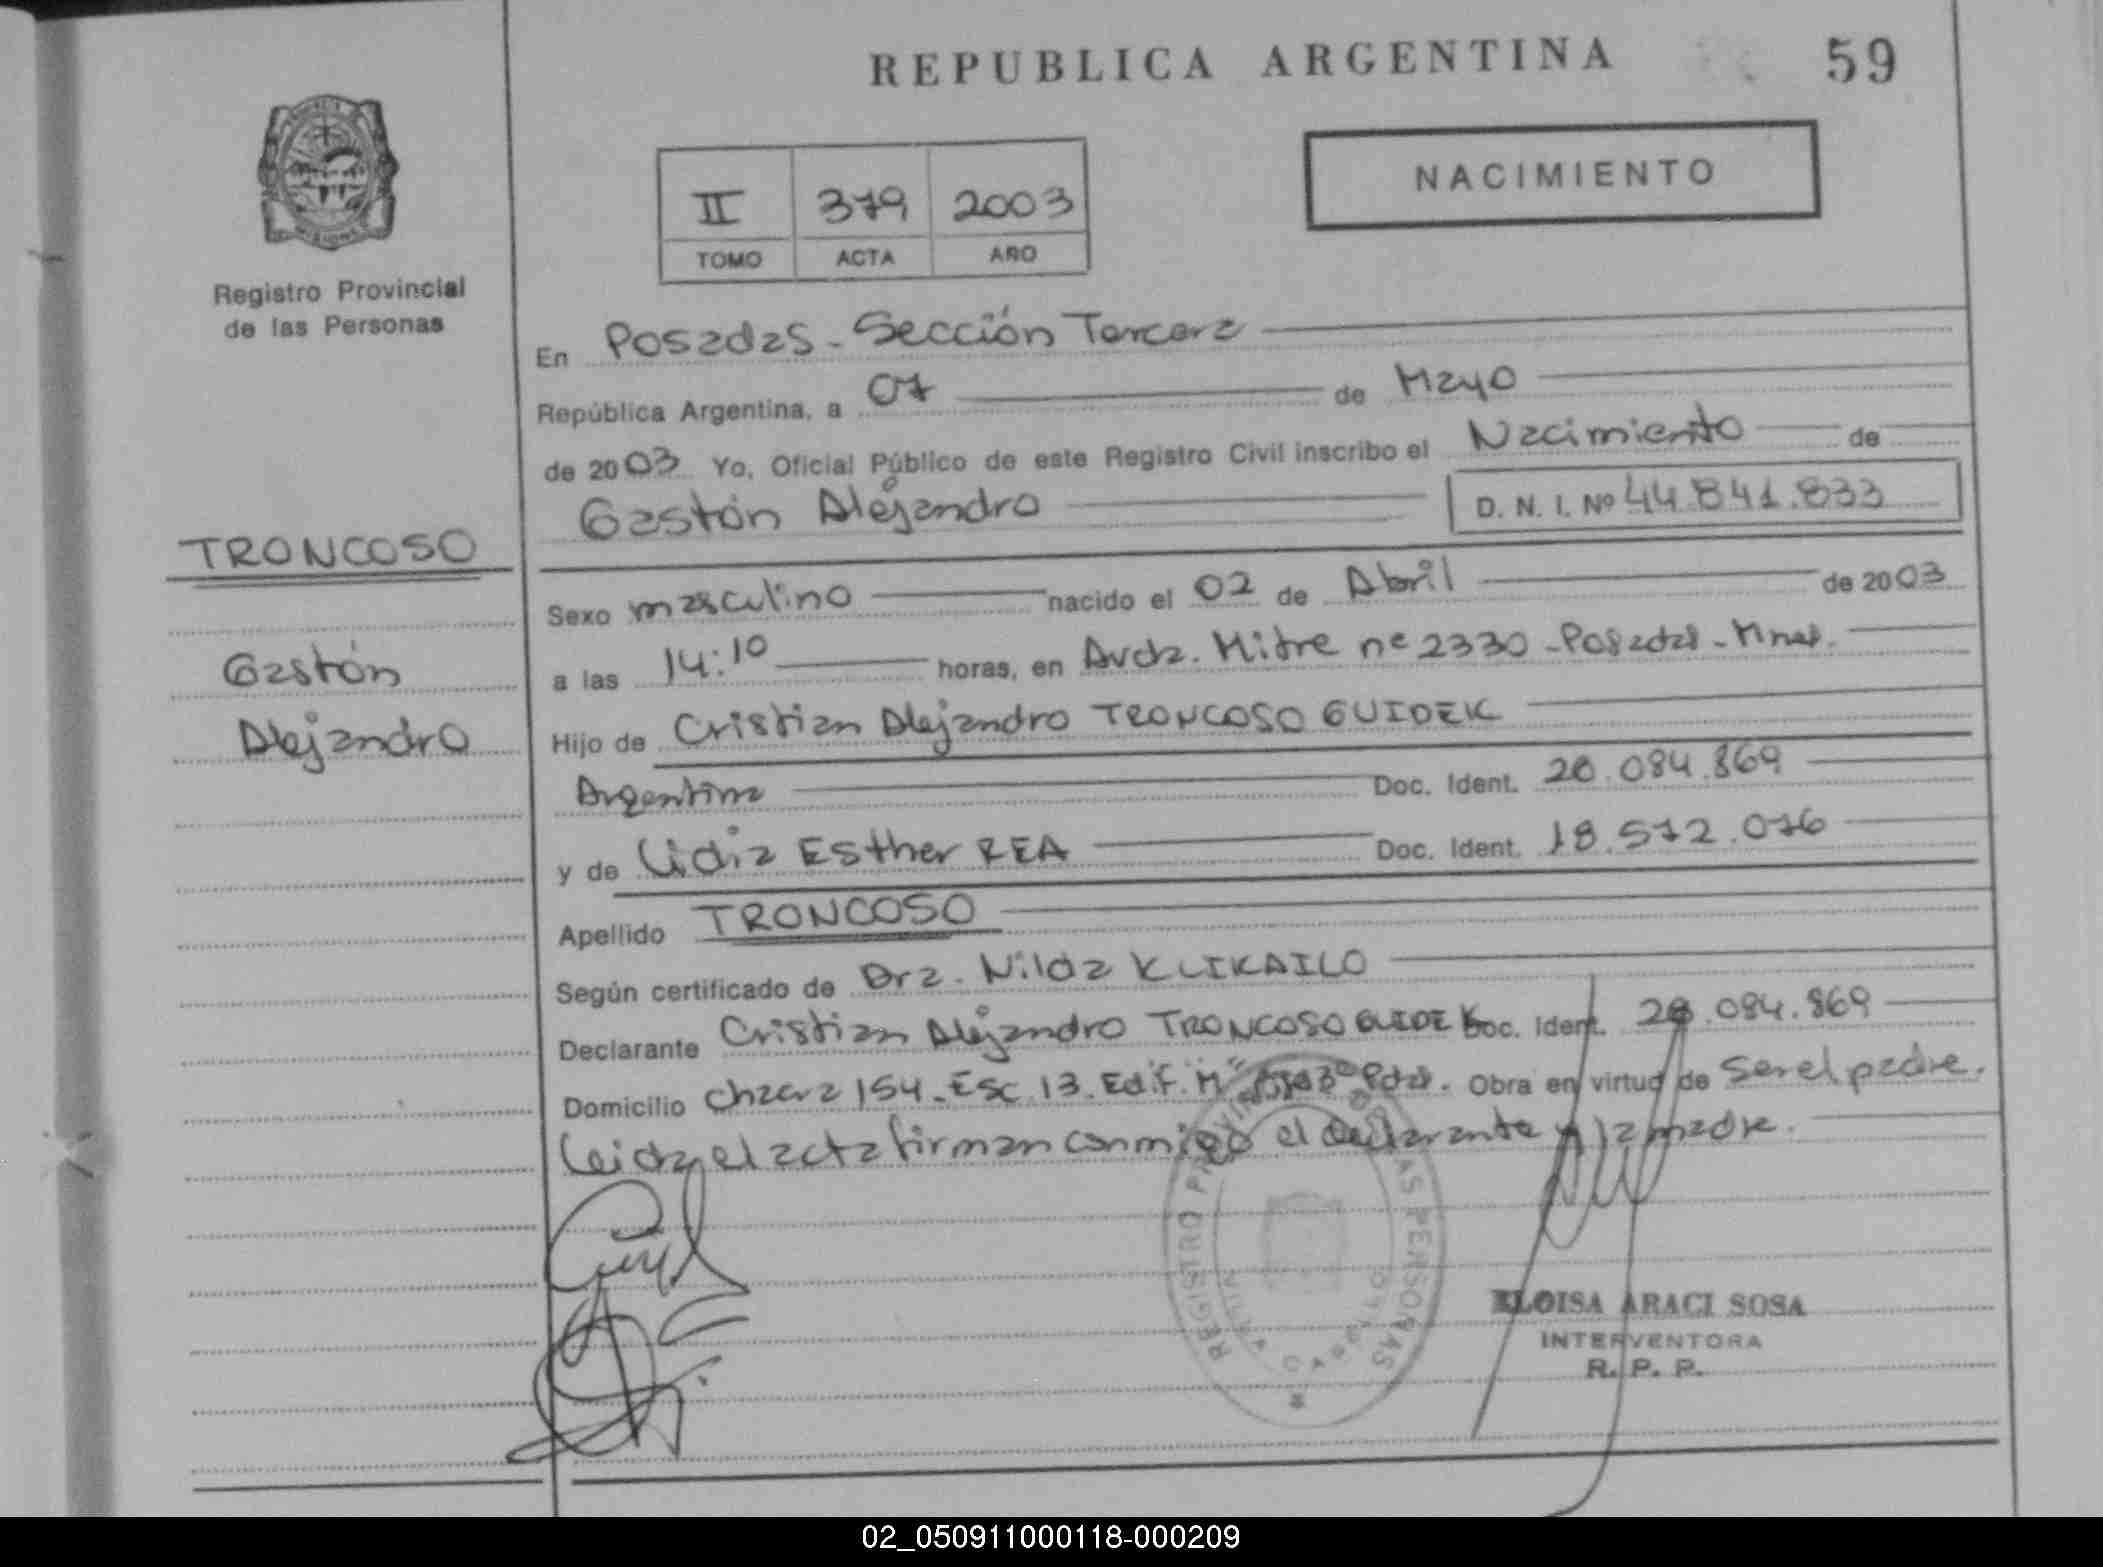 REPUBLICA ARGENTINA
59
NACIMIENTO
II 379 2003
TOMO ACTA AÑO
MISIONES
Registro Provincial
de las Personas
En Posadas - Sección Tercera
República Argentina, a 07 de Mayo
de 2003 Yo, Oficial Público de este Registro Civil inscribo el Nacimiento de
Gastón Alejandro D. N. I. Nº 44.841.833
TRONCOSO
Gastón
Alejandro
Sexo masculino nacido el 02 de Abril de 2003
a las 14:10 horas, en Avda. Mitre nº 2330 - Posadas - Mnes.
Hijo de Cristian Alejandro TRONCOSO GUIDEK
Argentina Doc. Ident. 20.084.869
y de Lidia Esther REA Doc. Ident. 18.572.076
Apellido TRONCOSO
Según certificado de Dra. Nilda KLIKAILO
Declarante Cristian Alejandro TRONCOSO GUIDEK Doc. Ident. 20.084.869
Domicilio Chacra 154 - Esc 13. Edif. "M" 3º Pdas. Obra en virtud de ser el padre.
Leida el acta firman conmigo el declarante y la madre.
REGISTRO PROVINCIAL DE LAS PERSONAS
ELOISA ARACI SOSA
INTERVENTORA
R. P. P.
02_050911000118-000209